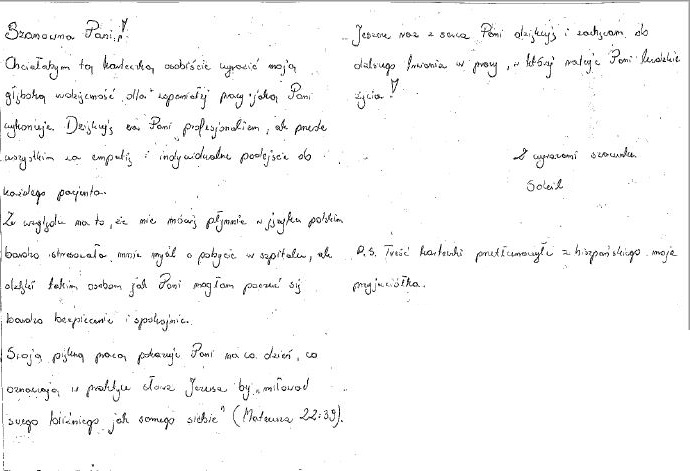 Szanowna Pani!
Chciałabym tą karteczką osobiście wyrazić moją
głęboką wdzięczność dla wspaniałej pracy jaką Pani
wykonuje. Dziękuję za Pani profesjonalizm, ale przede
wszystkim za empatię i indywidualne podejście do
każdego pacjenta.
Ze względu na to, że nie mówię płynnie w języku polskim
bardzo stresowała mnie myśl o pobycie w szpitalu, ale
dzięki takim osobom jak Pani mogłam poczuć się
bardzo bezpiecznie i spokojnie.
Swoją piękną pracą pokazuje Pani na co dzień, co
oznaczają w praktyce słowa Jezusa by "miłować
swego bliźniego jak samego siebie" (Mateusza 22:39).
Jeszcze raz z serca Pani dziękuję i zachęcam do
dalszego trwania w pracy, w której ratuje Pani ludzkie
życia!
Z wyrazami szacunku
Soleil
P.S. Treść karteczki przetłumaczyła z hiszpańskiego moja
przyjaciółka.